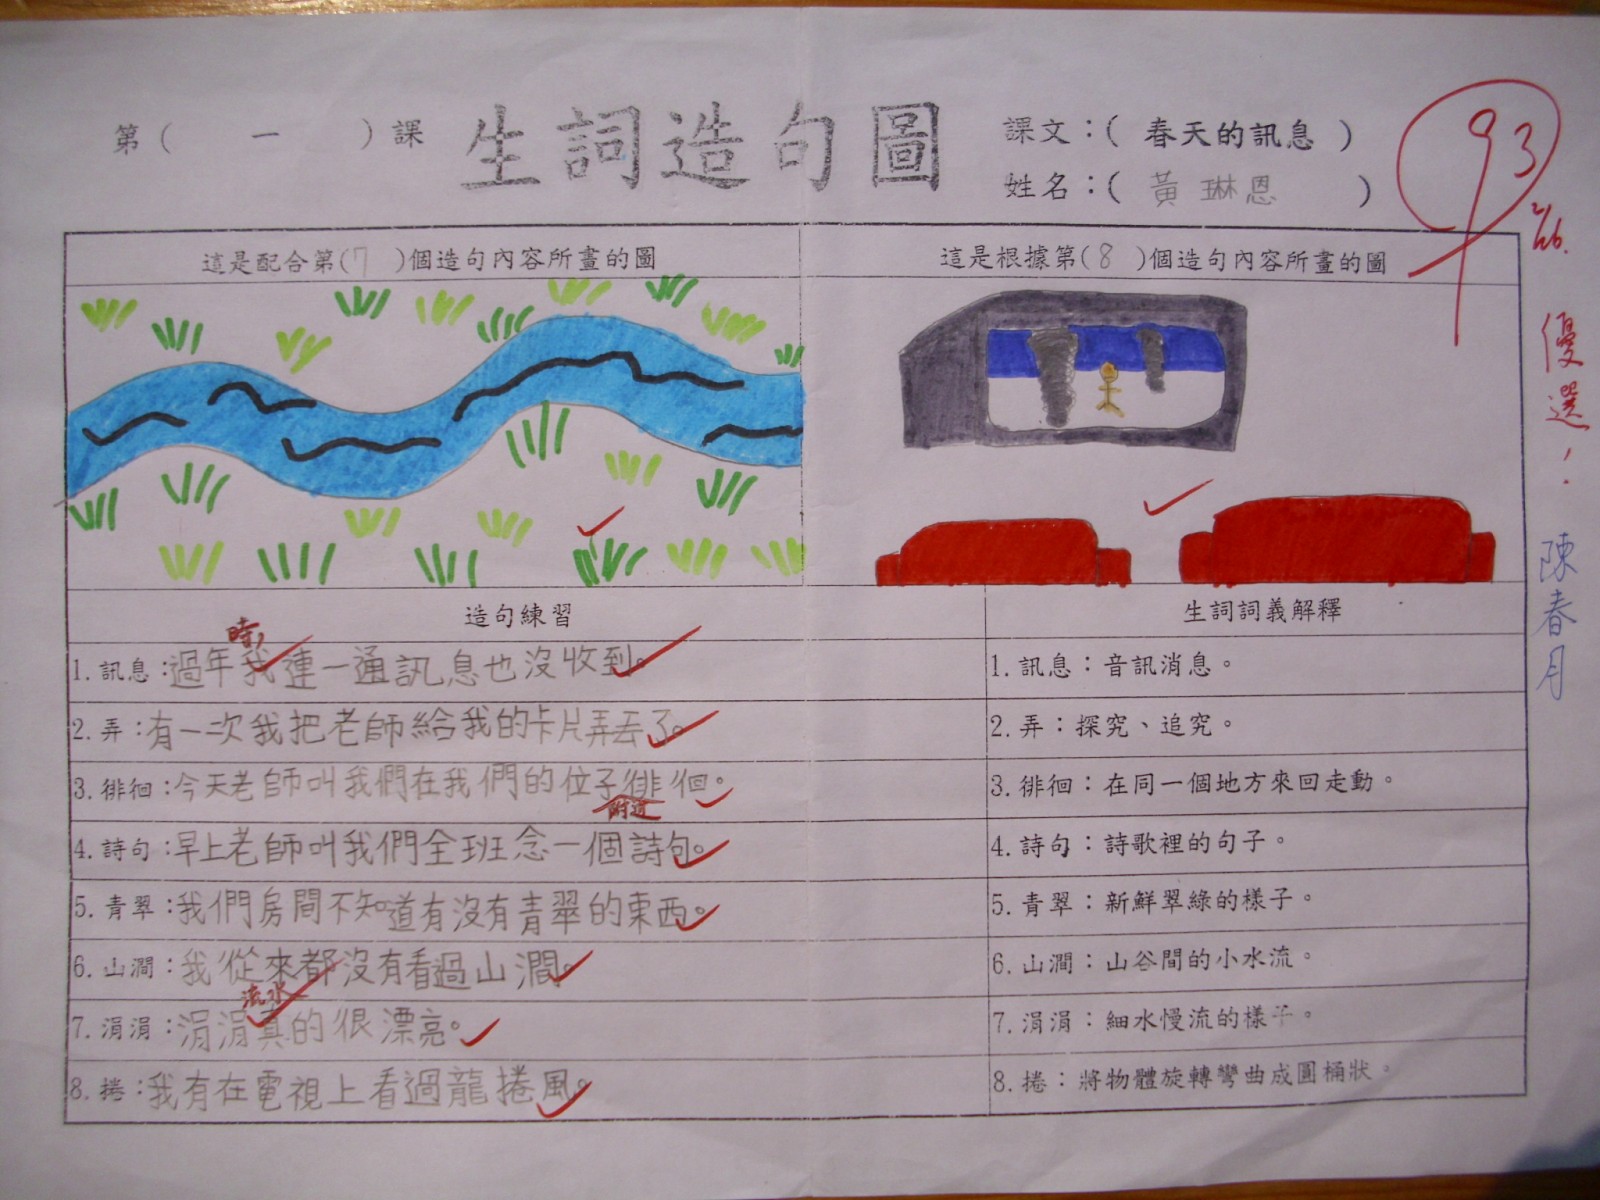 第( 一 )課
生詞造句圖
課文:( 春天的訊息 )
姓名:( 黃琳恩 )
93
2/26.
優選!
陳春月
這是配合第(7 )個造句內容所畫的圖
這是根據第(8 )個造句內容所畫的圖
造句練習
生詞詞義解釋
時,
1.訊息:過年我連一通訊息也沒收到。
1.訊息:音訊消息。
2.弄:有一次我把老師給我的卡片弄丟了。
2.弄:探究、追究。
3.徘徊:今天老師叫我們在我們的位子徘徊。
附近
3.徘徊:在同一個地方來回走動。
4.詩句:早上老師叫我們全班念一個詩句。
4.詩句:詩歌裡的句子。
5.青翠:我們房間不知道有沒有青翠的東西。
5.青翠:新鮮翠綠的樣子。
6.山澗:我從來都沒有看過山澗。
6.山澗:山谷間的小水流。
流水
7.涓涓:涓涓真的很漂亮。
7.涓涓:細水慢流的樣子。
8.捲:我有在電視上看過龍捲風。
8.捲:將物體旋轉彎曲成圓桶狀。